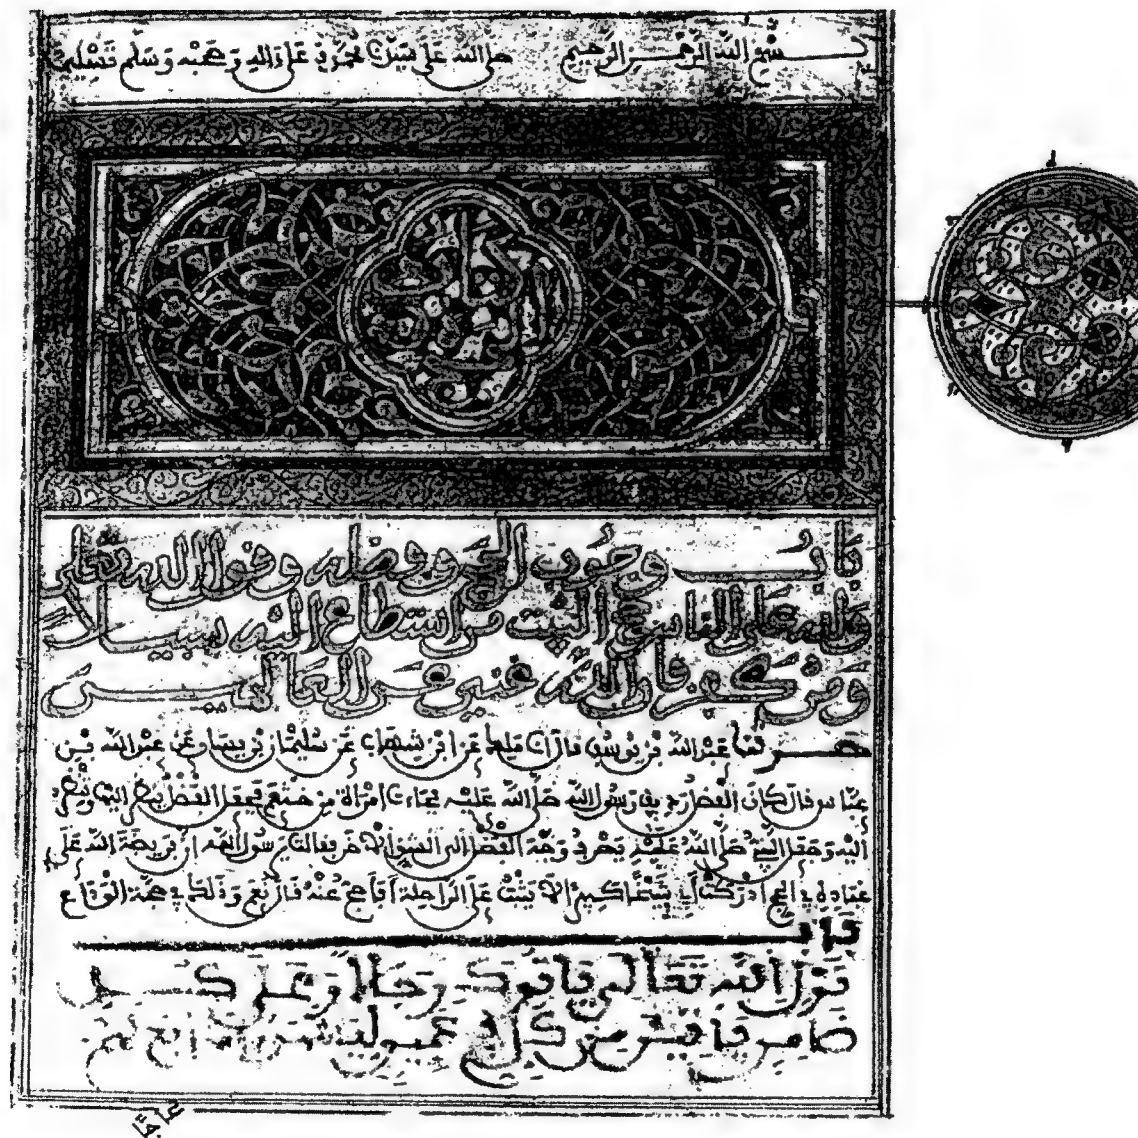 بسم الله الرحمن الرحيم صلى الله على سيدنا محمد وعلى ءاله وصحبه وسلم تسليما
كتاب
باب وجوب الحج وفضله وقول الله تعلى
ولله على الناس حج البيت من استطاع اليه سبيلا
ومن كفر فان الله غني عن العالمين
حدثنا عبد الله بن يوسف قال انا ملك عن ابن شهاب عن سليمان بن يسار عن عبد الله بن
عباس قال كان الفضل رديف رسول الله صلى الله عليه فجاءت امراة من خثعم فجعل الفضل ينظر اليها وتنظر
اليه وجعل النبي صلى الله عليه يصرف وجه الفضل الى الشق الاخر فقالت يرسول الله ان فريضة الله على
عباده في الحج ادركت ابي شيخا كبيرا لا يثبت على الراحلة افاحج عنه قال نعم وذلك في حجة الوداع
باب
قول الله تعالى ياتوك رجالا وعلى كل
ضامر ياتين من كل فج عميق